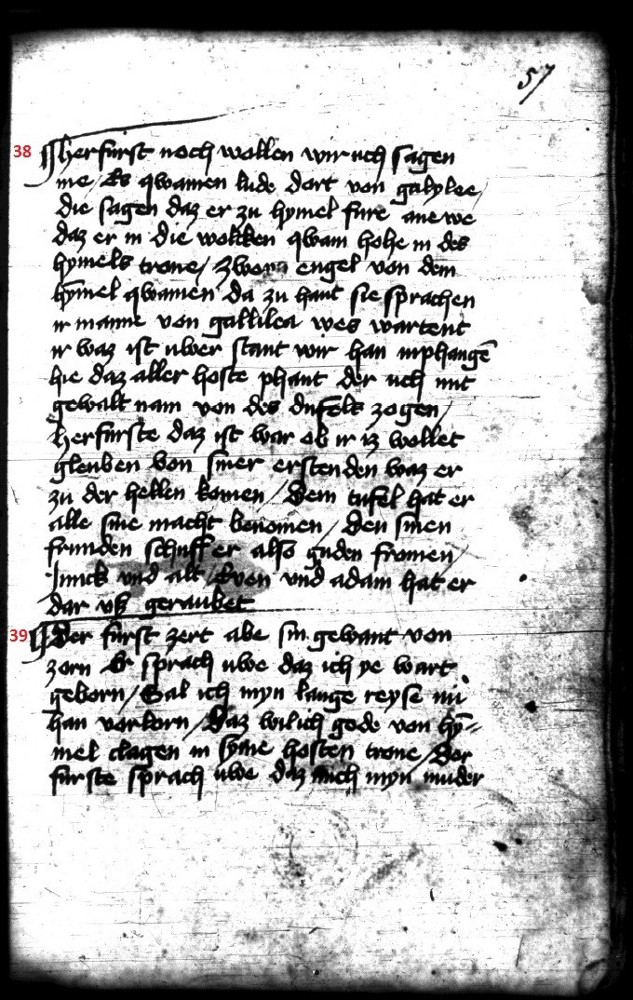 57
38 herfurst noch wollen wir uch sagen
me / Es qwamen lude dort von galylee /
die sagen daz er zu hymel fure ane we
daz er in die wolcken qwam hohe in des
hymels trone / zwene engel von dem
hymel qwamen da zu hant sie sprachen
ir manne von gallilea wes wartent
ir waz ist uwer stant wir han inphangē
hie daz aller hoste phant der uch mit
gewalt nam von des dufels zogen /
herfurste daz ist war ob ir iz wollet
gleuben von siner erstenden waz er
zu der hellen komen / Dem tufel hat er
alle sine macht benomen / Den sinen
frunden schuff er also guden fromen /
Junck und alt / Even und adam hat er
dar uß geraubet
39 Der furst zert abe sin gewant von
zorn Er sprach uwe daz ich ye wart
geborn / Sal ich myn lange reyse nu
han verlorn / Daz wil ich gode von hy=
mel clagen in syme hosten trone / Der
furste sprach uwe daz mich myn muder